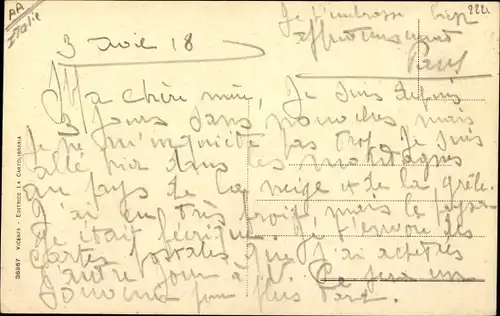 AA
Italie
222
3 avril 18
Je t'embrasse bien
affectueusement
Paul
Ma chère mimi,
3 jours sans nouvelles mais
je ne m'inquiète pas trop. Je suis
allé hier dans les montagnes
au pays de la neige & de la grêle.
J'ai eu très froid, mais le paysage
était féérique. Je t'envoie des
cartes postales que j'ai achetées
l'autre jour à
Ce sera un
souvenir pour plus tard.
Je suis depuis
36967 VICENZA - EDITRICE LA CARTOLIBRARIA